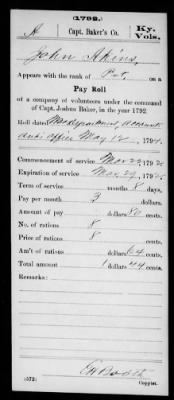 (1792.)
A Capt. Baker's Co. Ky. Vols.
John Akins,
Appears with the rank of Pvt. on a
Pay Roll
of a company of volunteers under the command
of Capt. Joshua Baker, in the year 1792.
Roll dated War department, Accounts
office May 12, 1794.
Commencement of service Mar 22, 1792.
Expiration of service Mar 29, 1792.
Term of service months 8 days.
Pay per month 3 dollars
Amount of pay dollars 80 cents.
No. of rations 8
Price of rations 8 cents.
Am't of rations dollars 64 cents.
Total amount 1 dollars 44 cents.
Remarks:
(572) Copyist.